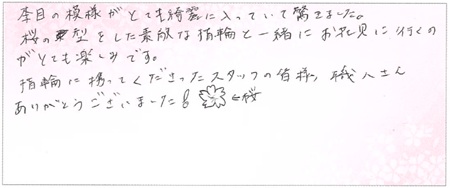 杢目の模様がとても綺麗に入っていて驚きました。
桜の型をした素敵な指輪と一緒にお花見に行くの
がとても楽しみです。
指輪に携ってくださったスタッフの皆様、職人さん
ありがとうございました。 ←桜